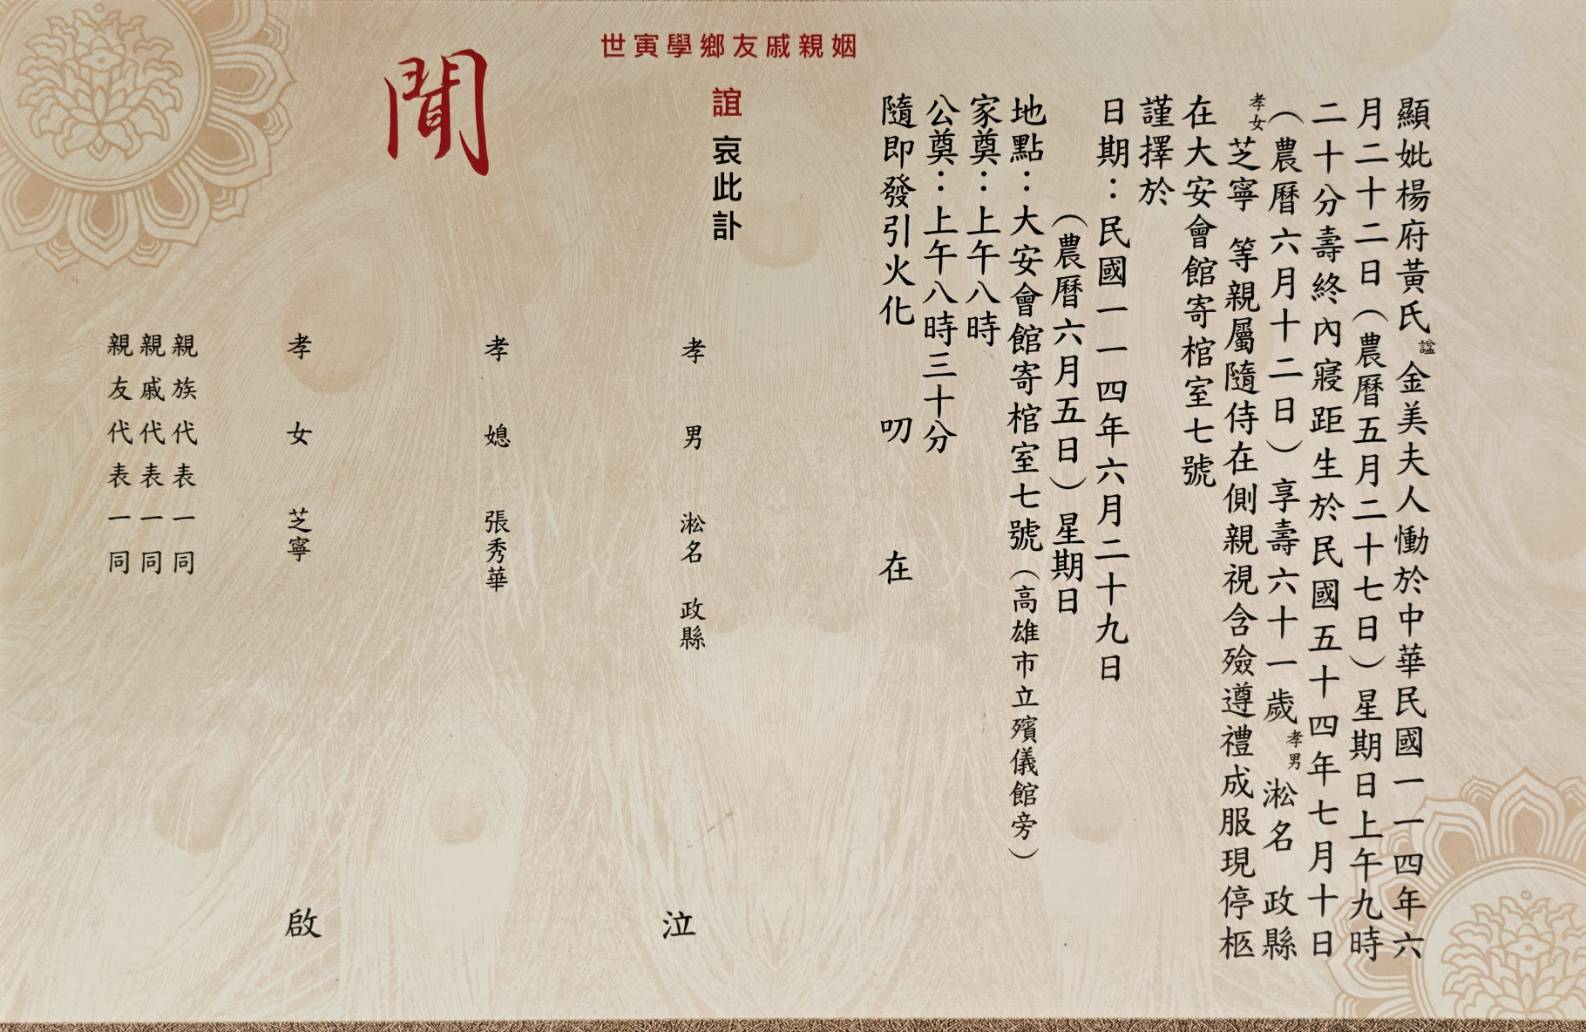 顯妣楊府黃氏諡金美夫人慟於中華民國一一四年六
月二十二日（農曆五月二十七日）星期日上午九時
二十分壽終內寢距生於民國五十四年七月十日
（農曆六月十二日）享壽六十一歲孝男淞名 政縣
孝女芝寧 等親屬隨侍在側親視含殮遵禮成服現停柩
在大安會館寄棺室七號
謹擇於
日期：民國一一四年六月二十九日
（農曆六月五日）星期日
地點：大安會館寄棺室七號（高雄市立殯儀館旁）
家奠：上午八時
公奠：上午八時三十分
隨即發引火化 叨 在
世寅學鄉友戚親姻
誼 哀此訃
聞
孝 男 淞名 政縣 泣
孝 媳 張秀華
孝 女 芝寧 啟
親族代表一同
親戚代表一同
親友代表一同